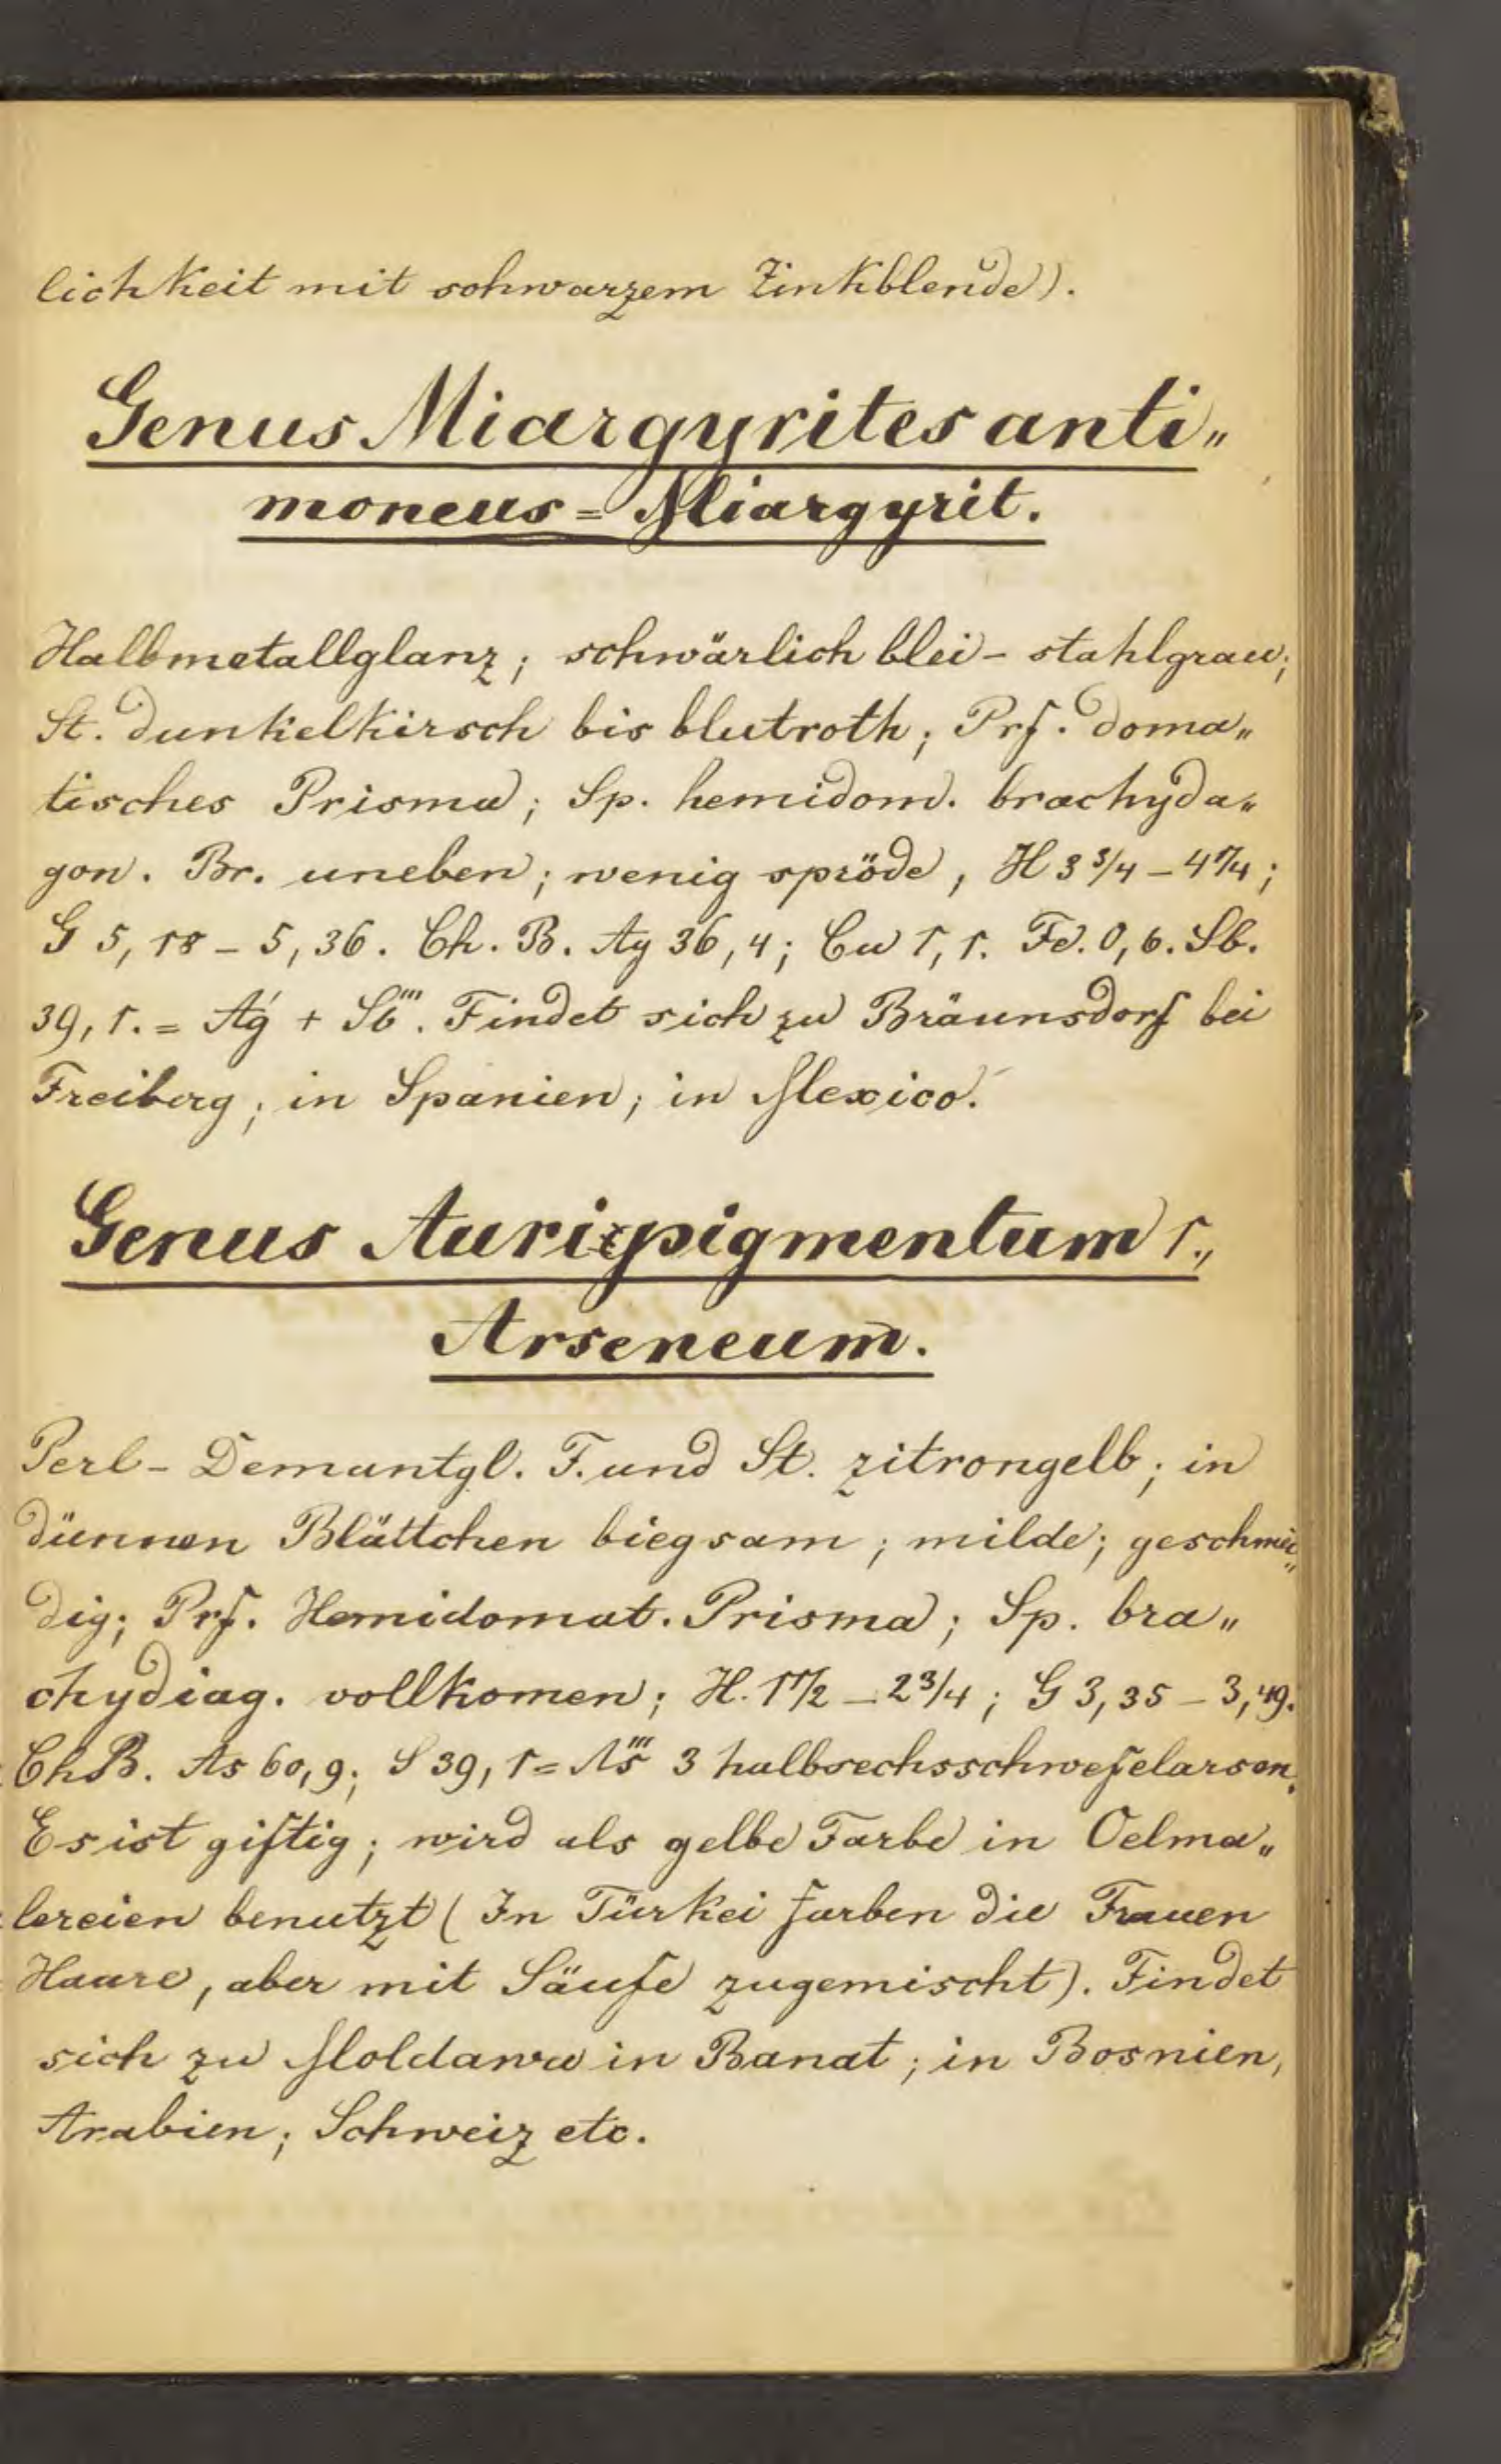 lichkeit mit schwarzem Zinkblende).
Genus Miargyrites anti„
moneus = Miargyrit.
Halbmetallglanz; schwärlich blei - stahlgrau;
St. dunkelkirsch bis blutroth; Prf. doma„
tisches Prisma; Sp. hemidom. brachyda„
gon. Br. uneben; wenig spröde, H 3 3/4 - 4 1/4;
G 5,18 - 5,36. Ch. B. Ag 36,4; Cu 1,1. Fe. 0,6. Sb.
39,1. = Aǵ + Sb‴. Findet sich zu Bräunsdorf bei
Freiberg; in Spanien; in Mexico.
Genus Auripigmentum 1.,
Arseneum.
Perl - Demantgl. F. und St. zitrongelb; in
dünnen Blättchen biegsam; milde; geschmei„
dig; Prf. Hemidomat. Prisma; Sp. bra„
chydiag. vollkomen; H. 1 1/2 - 2 3/4; G 3,35 - 3,49.
Ch B. As 60,9; S 39,1 = As‴ 3 halbsechsschwefelarsen.
Es ist giftig; wird als gelbe Farbe in Oelma„
lereien benutzt (In Türkei farben die Frauen
Haare, aber mit Säufe zugemischt). Findet
sich zu Moldawa in Banat; in Bosnien,
Arabien; Schweiz etc.